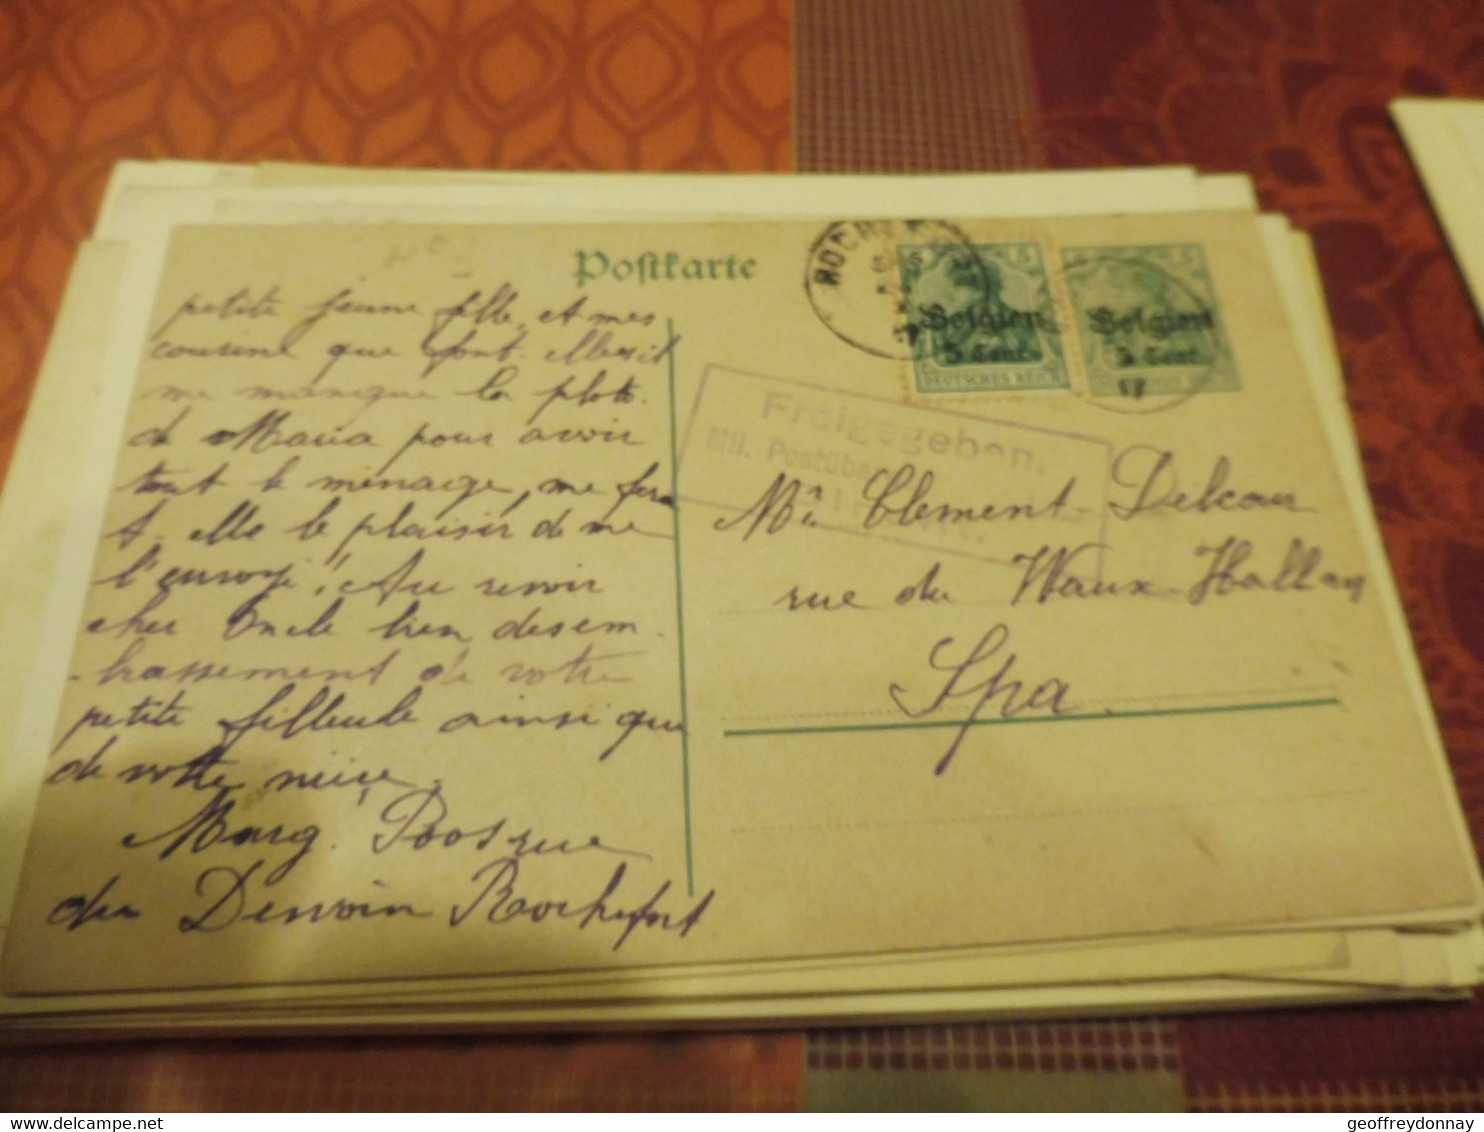 Postkarte
petite jeune fille, et mes
cousine que font-elles il
me manque la
de Maria pour avoir
tout le ménage, me fera
t-elle le plaisir de me
l'envoyé! Au revoir
cher Oncle bien des em
brassement de votre
petite filleule ainsi que
de votre nièce.
Marg. Roos rue
du Devoin Rochefort
ROCHEFORT
5
Belgien
5 Cent.
DEUTSCHES REICH
5
Belgien
5 Cent.
17
Freigegeben.
Mil. Postübe
Mr Clement-Delcour
rue du Waux-Hall
Spa.
geoffreydonnay